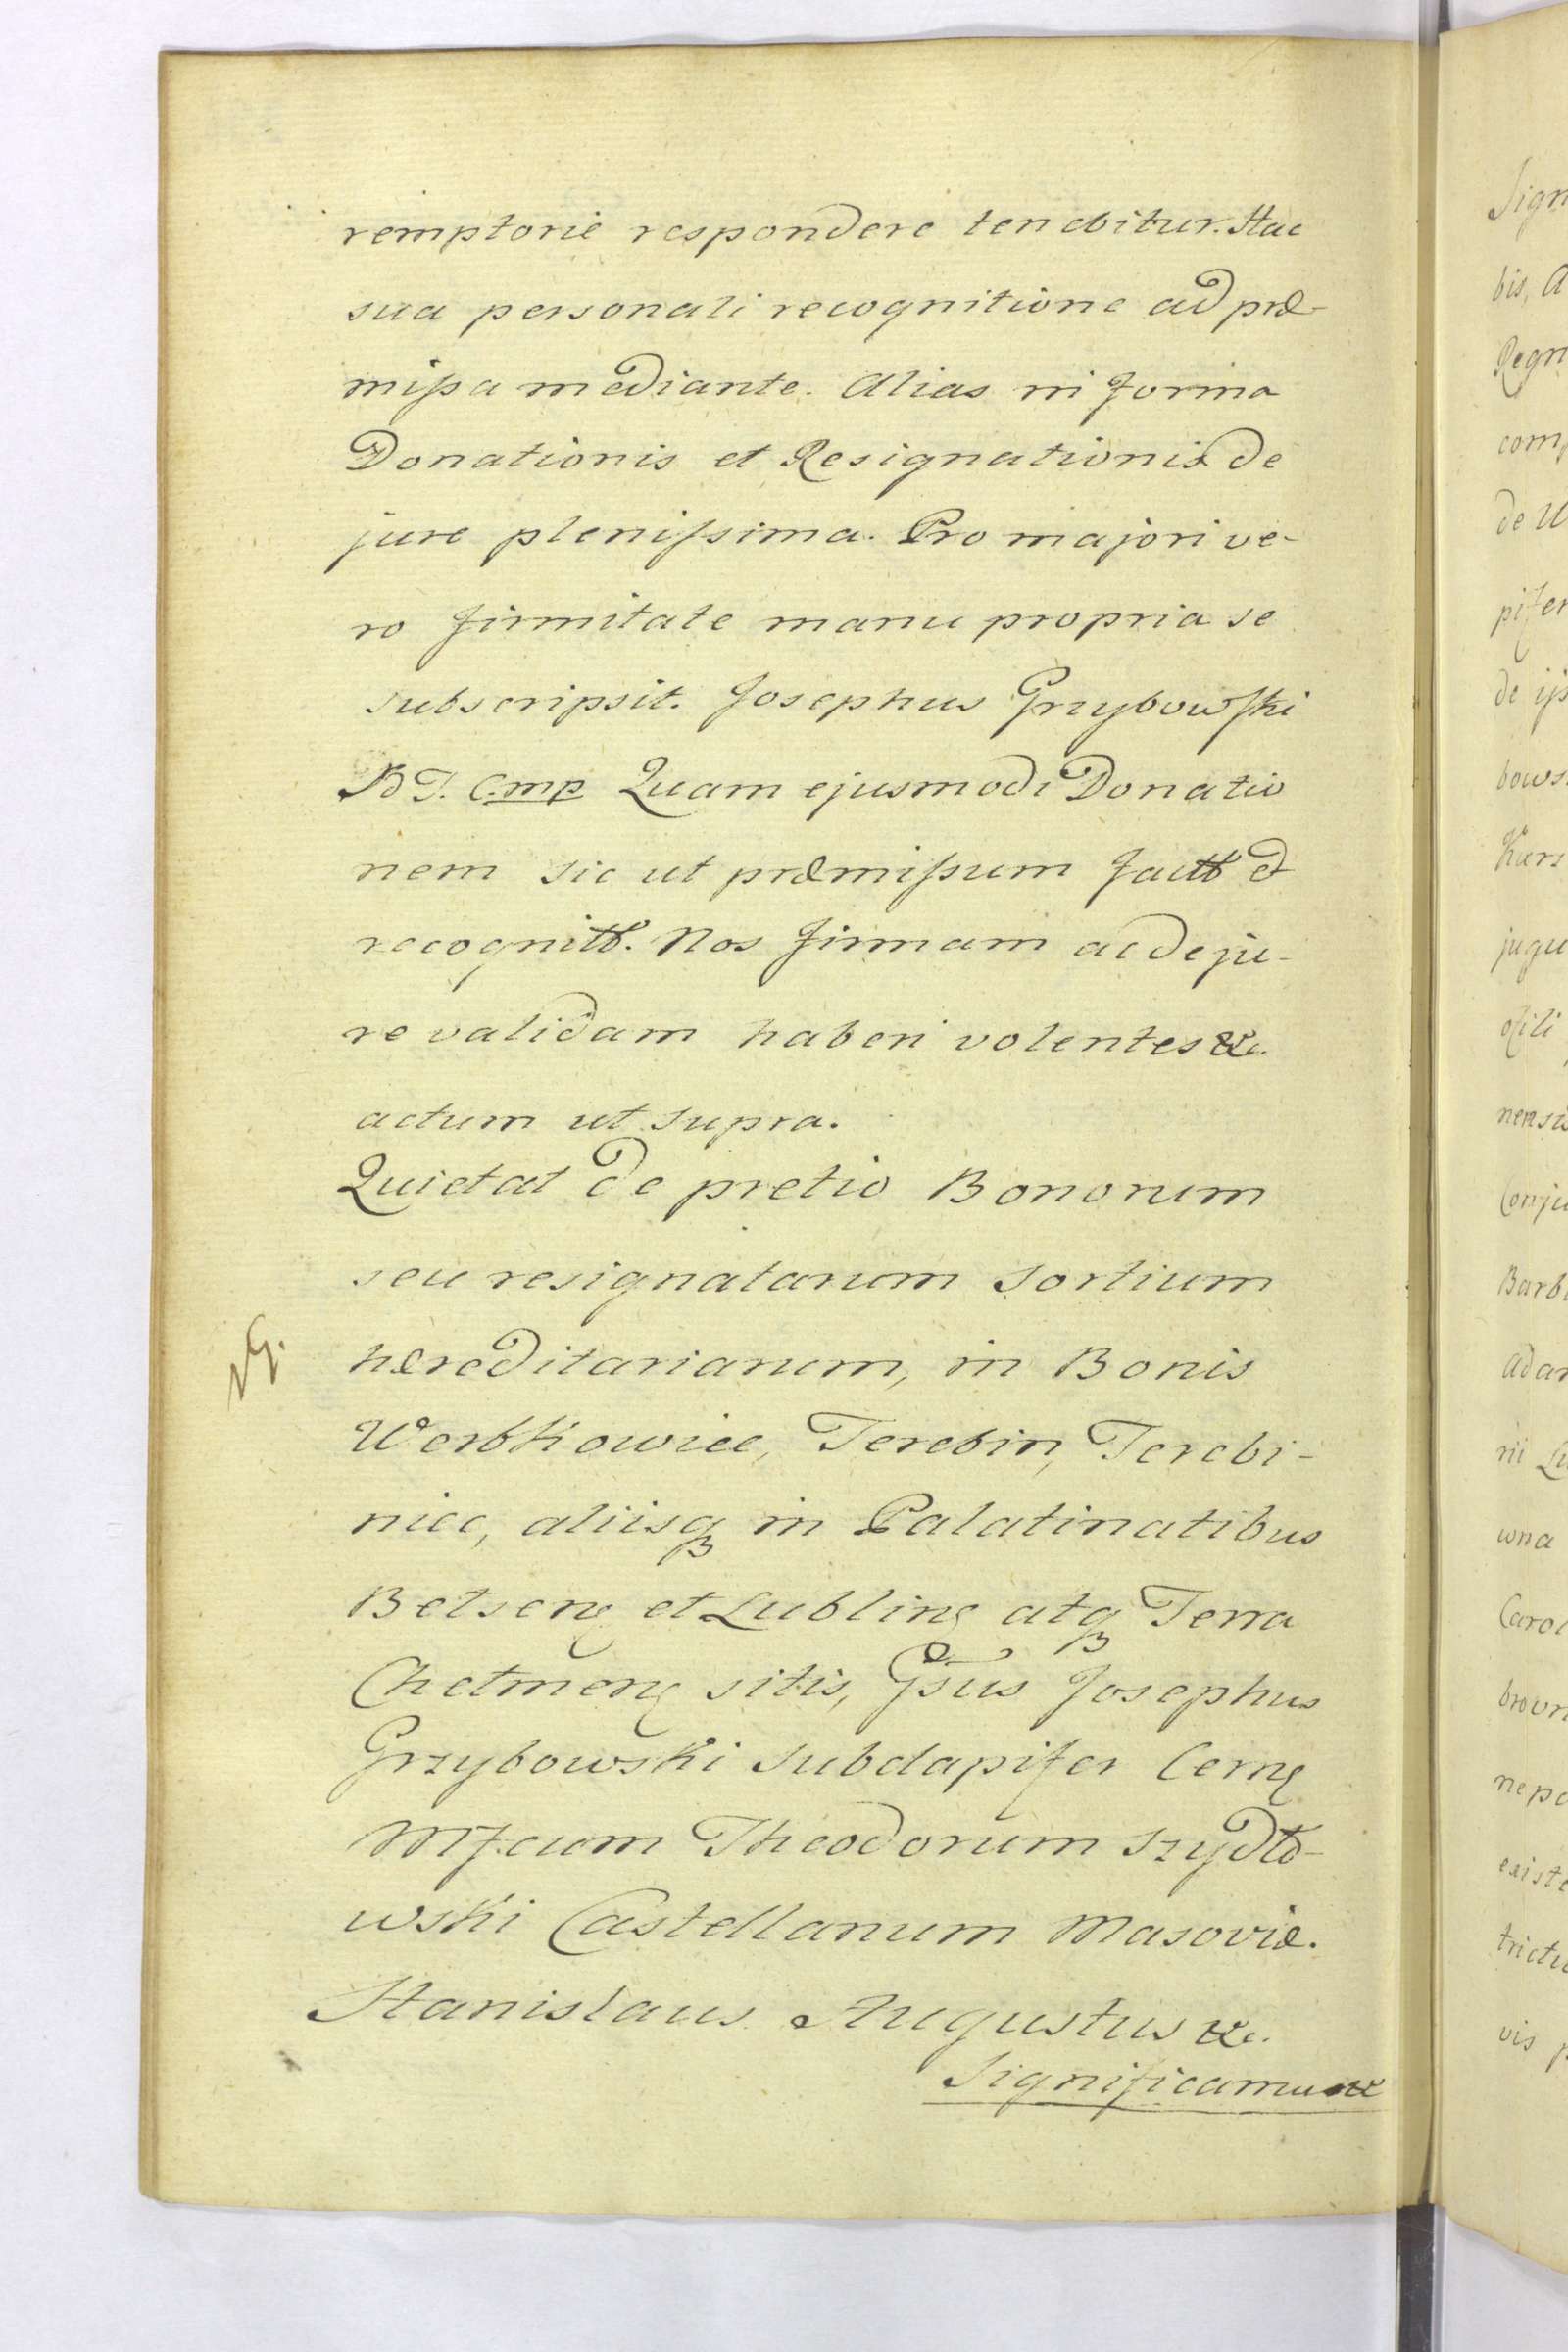 remptorie respondere tenebitur. Hac
sua personali recognitione ad præ-
missa mediante. Alias in forma
Donationis et Resignationis de
jure plenissima. Pro majori ve-
ro firmitate manu propria se
subscripsit. Josephus Grzybowski
P. C. mp Quam ejusmodi Donatio
nem sic ut præmissum factt et
recognitt. Nos firmam ac de ju-
re validam haberi volentes &c.
actum ut supra.
Quietat de pretio Bonorum
seu resignatarum sortium
hæreditariarum, in Bonis
Werbkowice, Terebin, Terebi-
niec, aliisq in Palatinatibus
Belsenę et Lublinę atq Terra
Chelmenę sitis, Gsus Josephus
Grzybowski Subdapifer Cernę
Mfcum Theodorum Szydło-
wski Castellanum Masoviæ.
Stanislaus Augustus &c.
Significamus &c
Sign
bis, A
Regn
com
de W
pifer
de ijs
bows
Kurs
jugu
nensi
Conju
Barb
adar
rii Lu
una
Caro
nepo
existe
trictu
vis p